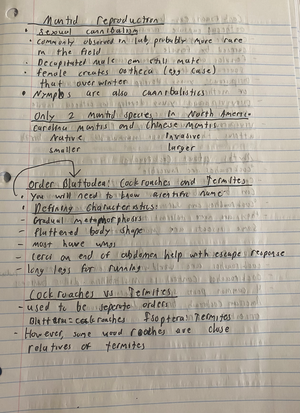 Mantid reproduction
• sexual cannibalism
• commonly observed in lab, probably more rare
in the field
• Decapitated male can still mate
• female creates ootheca (egg case)
that overwinter
• Nymphs are also cannibalistics
Only 2 mantid species in North America
Carolina mantis and Chinese mantis
Native Invasive
smaller larger
Order Blattodea: Cockroaches and Termites
• You will need to know scientific name
• Defining characteristics:
- Gradual metaphorphosis
- flattened body shape
- most have wings
- Cerci on end of abdomen help with escape response
- long legs for running
Cockroaches vs Termites
- used to be seperate orders
Blattaria = cockroaches Isoptera: Termites
- However, some wood roaches are close
relatives of termites